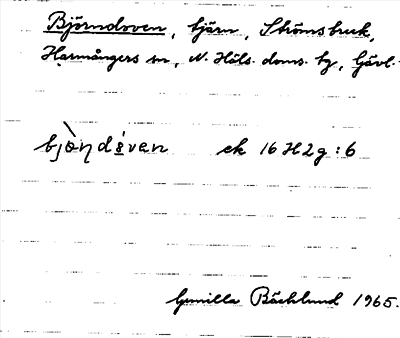 Björndoven, tjärn, Strömsbruk,
Harmångers sn, N. Häls. doms. tg, Gävl.
bjò̀ṇdə́van ek 16 H 2 g : 6
Gunilla Bäcklund 1965.